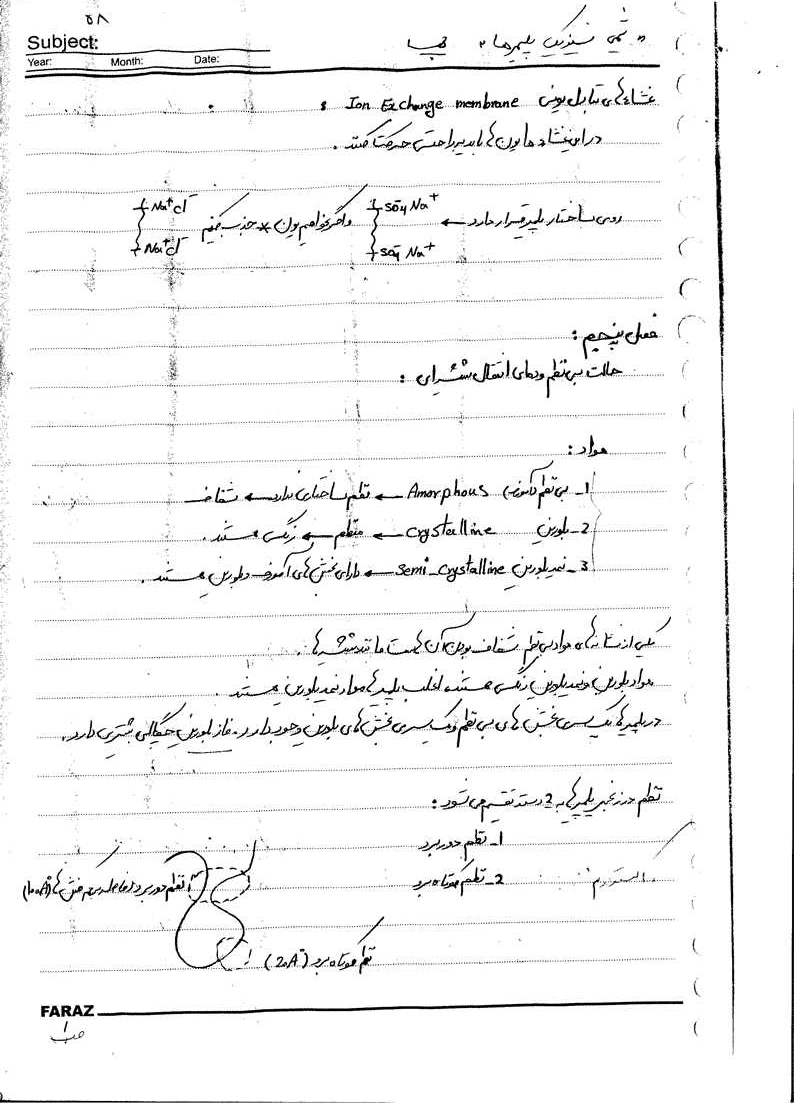 ۵۸
Subject:
Year: Month: Date:
شیمی فیزیک پلیمرها
غشاءهای تبادل یونی Ion Exchange membrane :
در این غشاء ها یون ها باید براحتی حرکت کنند.
روی ساختار پلیمر قرار دارد ← SO₄⁻ Na⁺ واگر بخواهیم یون * جذب کنیم Na⁺Cl⁻
SO₄⁻ Na⁺ Na⁺Cl⁻
فصل پنجم :
حالت بی نظم و دمای انتقال شیشه ای :
مواد :
1_ بی نظم (آمورف) Amorphous ← نظم ساختاری ندارد ← شفاف
2_ بلورین crystalline ← منظم ← رنگی هستند.
3_ نیمه بلورین semi_crystalline ← دارای بخش های آمورف و بلورین هستند.
یکی از نشانه های مواد بی نظم شفاف بودن آن هاست مانند شیشه ها.
مواد بلورین و نیمه بلورین رنگی هستند. اغلب پلیمرها مواد نیمه بلورین هستند.
در پلیمرها یک سری بخش های بی نظم و یک سری بخش های بلورین وجود دارد. فاز بلورین چگالی بیشتری دارد.
نظم در زنجیر پلیمرها به 2 دسته تقسیم می شود :
1_ نظم دور برد
2_ نظم کوتاه برد
نظم دور برد (فاصله بین بخش ها 100A°)
نظم کوتاه برد (20A°)
FARAZ